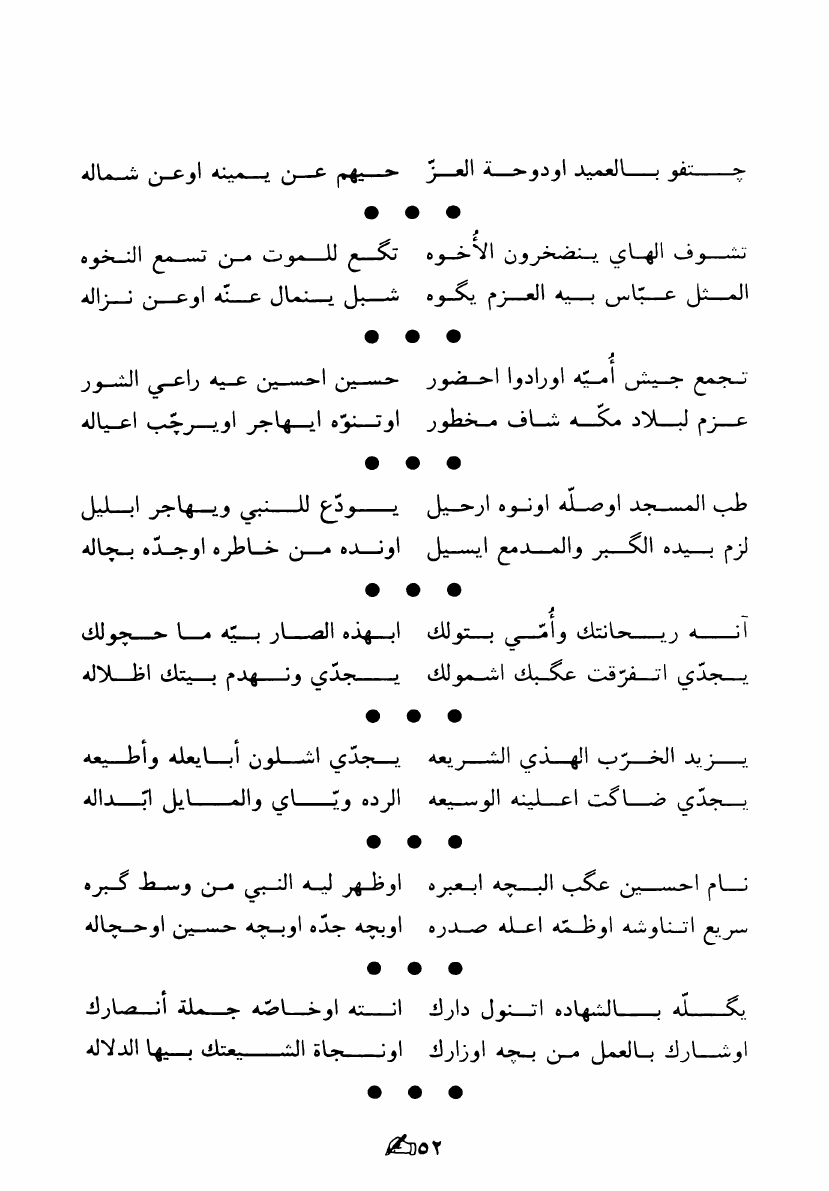 چتفو بالعميد اودوحة العزّ حيهم عن يمينه اوعن شماله
● ● ●
تشوف الهاي ينضخرون الأُخوه تگع للموت من تسمع النخوه
المثل عبّاس بيه العزم يگوه شبل ينمال عنّه اوعن نزاله
● ● ●
تجمع جيش أُميّه اورادوا احضور حسين احسين عيه راعي الشور
عزم لبلاد مكّه شاف مخطور اوتنوّه ايهاجر اويرچّب اعياله
● ● ●
طب المسجد اوصلّه اونوه ارحيل يودّع للنبي ويهاجر ابليل
لزم بيده الگبر والمدمع ايسيل اونده من خاطره اوجدّه بچاله
● ● ●
آنه ريحانتك وأُمّي بتولك ابهذه الصار بيّه ما حچولك
يجدّي اتفرّقت عگبك اشمولك يجدّي ونهدم بيتك اظلاله
● ● ●
يزيد الخرّب الهذي الشريعه يجدّي اشلون أبايعله وأطيعه
يجدّي ضاگت اعلينه الوسيعه الرده ويّاي والمايل ابّداله
● ● ●
نام احسين عگب البچه ابعبره اوظهر ليه النبي من وسط گبره
سريع اتناوشه اوظمّه اعله صدره اوبچه جدّه اوبچه حسين اوحچاله
● ● ●
يگلّه بالشهاده اتنول دارك انته اوخاصّه جملة أنصارك
اوشارك بالعمل من بچه اوزارك اونجاة الشيعتك بيها الدلاله
● ● ●
٥٢